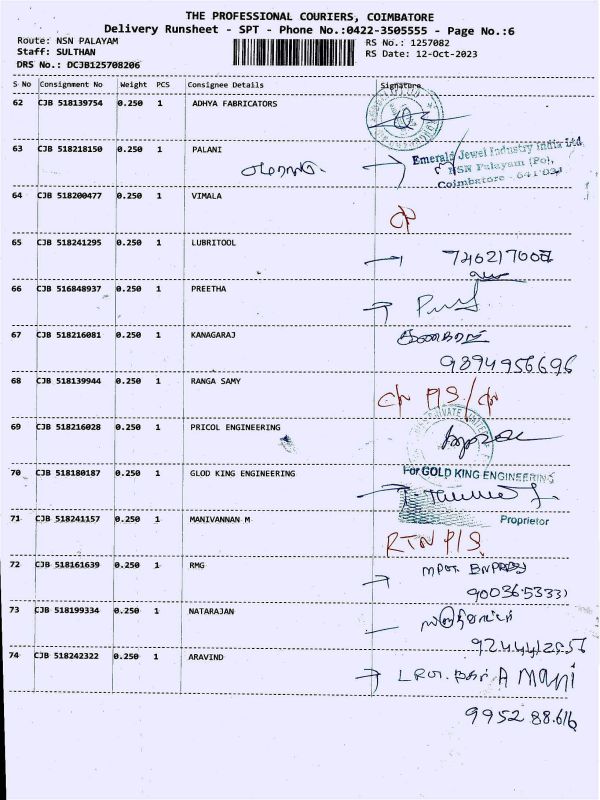 THE PROFESSIONAL COURIERS, COIMBATORE
Delivery Runsheet - SPT - Phone No.:0422-3505555 - Page No.:6
Route: NSN PALAYAM RS No.: 1257082
Staff: SULTHAN RS Date: 12-Oct-2023
DRS No.: DCJB125708206
S No Consignment No Weight PCS Consignee Details Signature
62 CJB 518139754 0.250 1 ADHYA FABRICATORS
63 CJB 518218150 0.250 1 PALANI
Emerald Jewel Industry India Ltd
NSN Palayam (Po),
Coimbatore - 641 031
64 CJB 518200477 0.250 1 VIMALA
65 CJB 518241295 0.250 1 LUBRITOOL
7402170007
66 CJB 516848937 0.250 1 PREETHA
67 CJB 518216081 0.250 1 KANAGARAJ
9894956696
68 CJB 518139944 0.250 1 RANGA SAMY
P/S/
69 CJB 518216028 0.250 1 PRICOL ENGINEERING
PRIVATE LIMITED
70 CJB 518180187 0.250 1 GLOD KING ENGINEERING
For GOLD KING ENGINEERING
Proprietor
71 CJB 518241157 0.250 1 MANIVANNAN M
RTN P/S
72 CJB 518161639 0.250 1 RMG
9003653331
73 CJB 518199334 0.250 1 NATARAJAN
74 CJB 518242322 0.250 1 ARAVIND
A Mani
9952 88.616